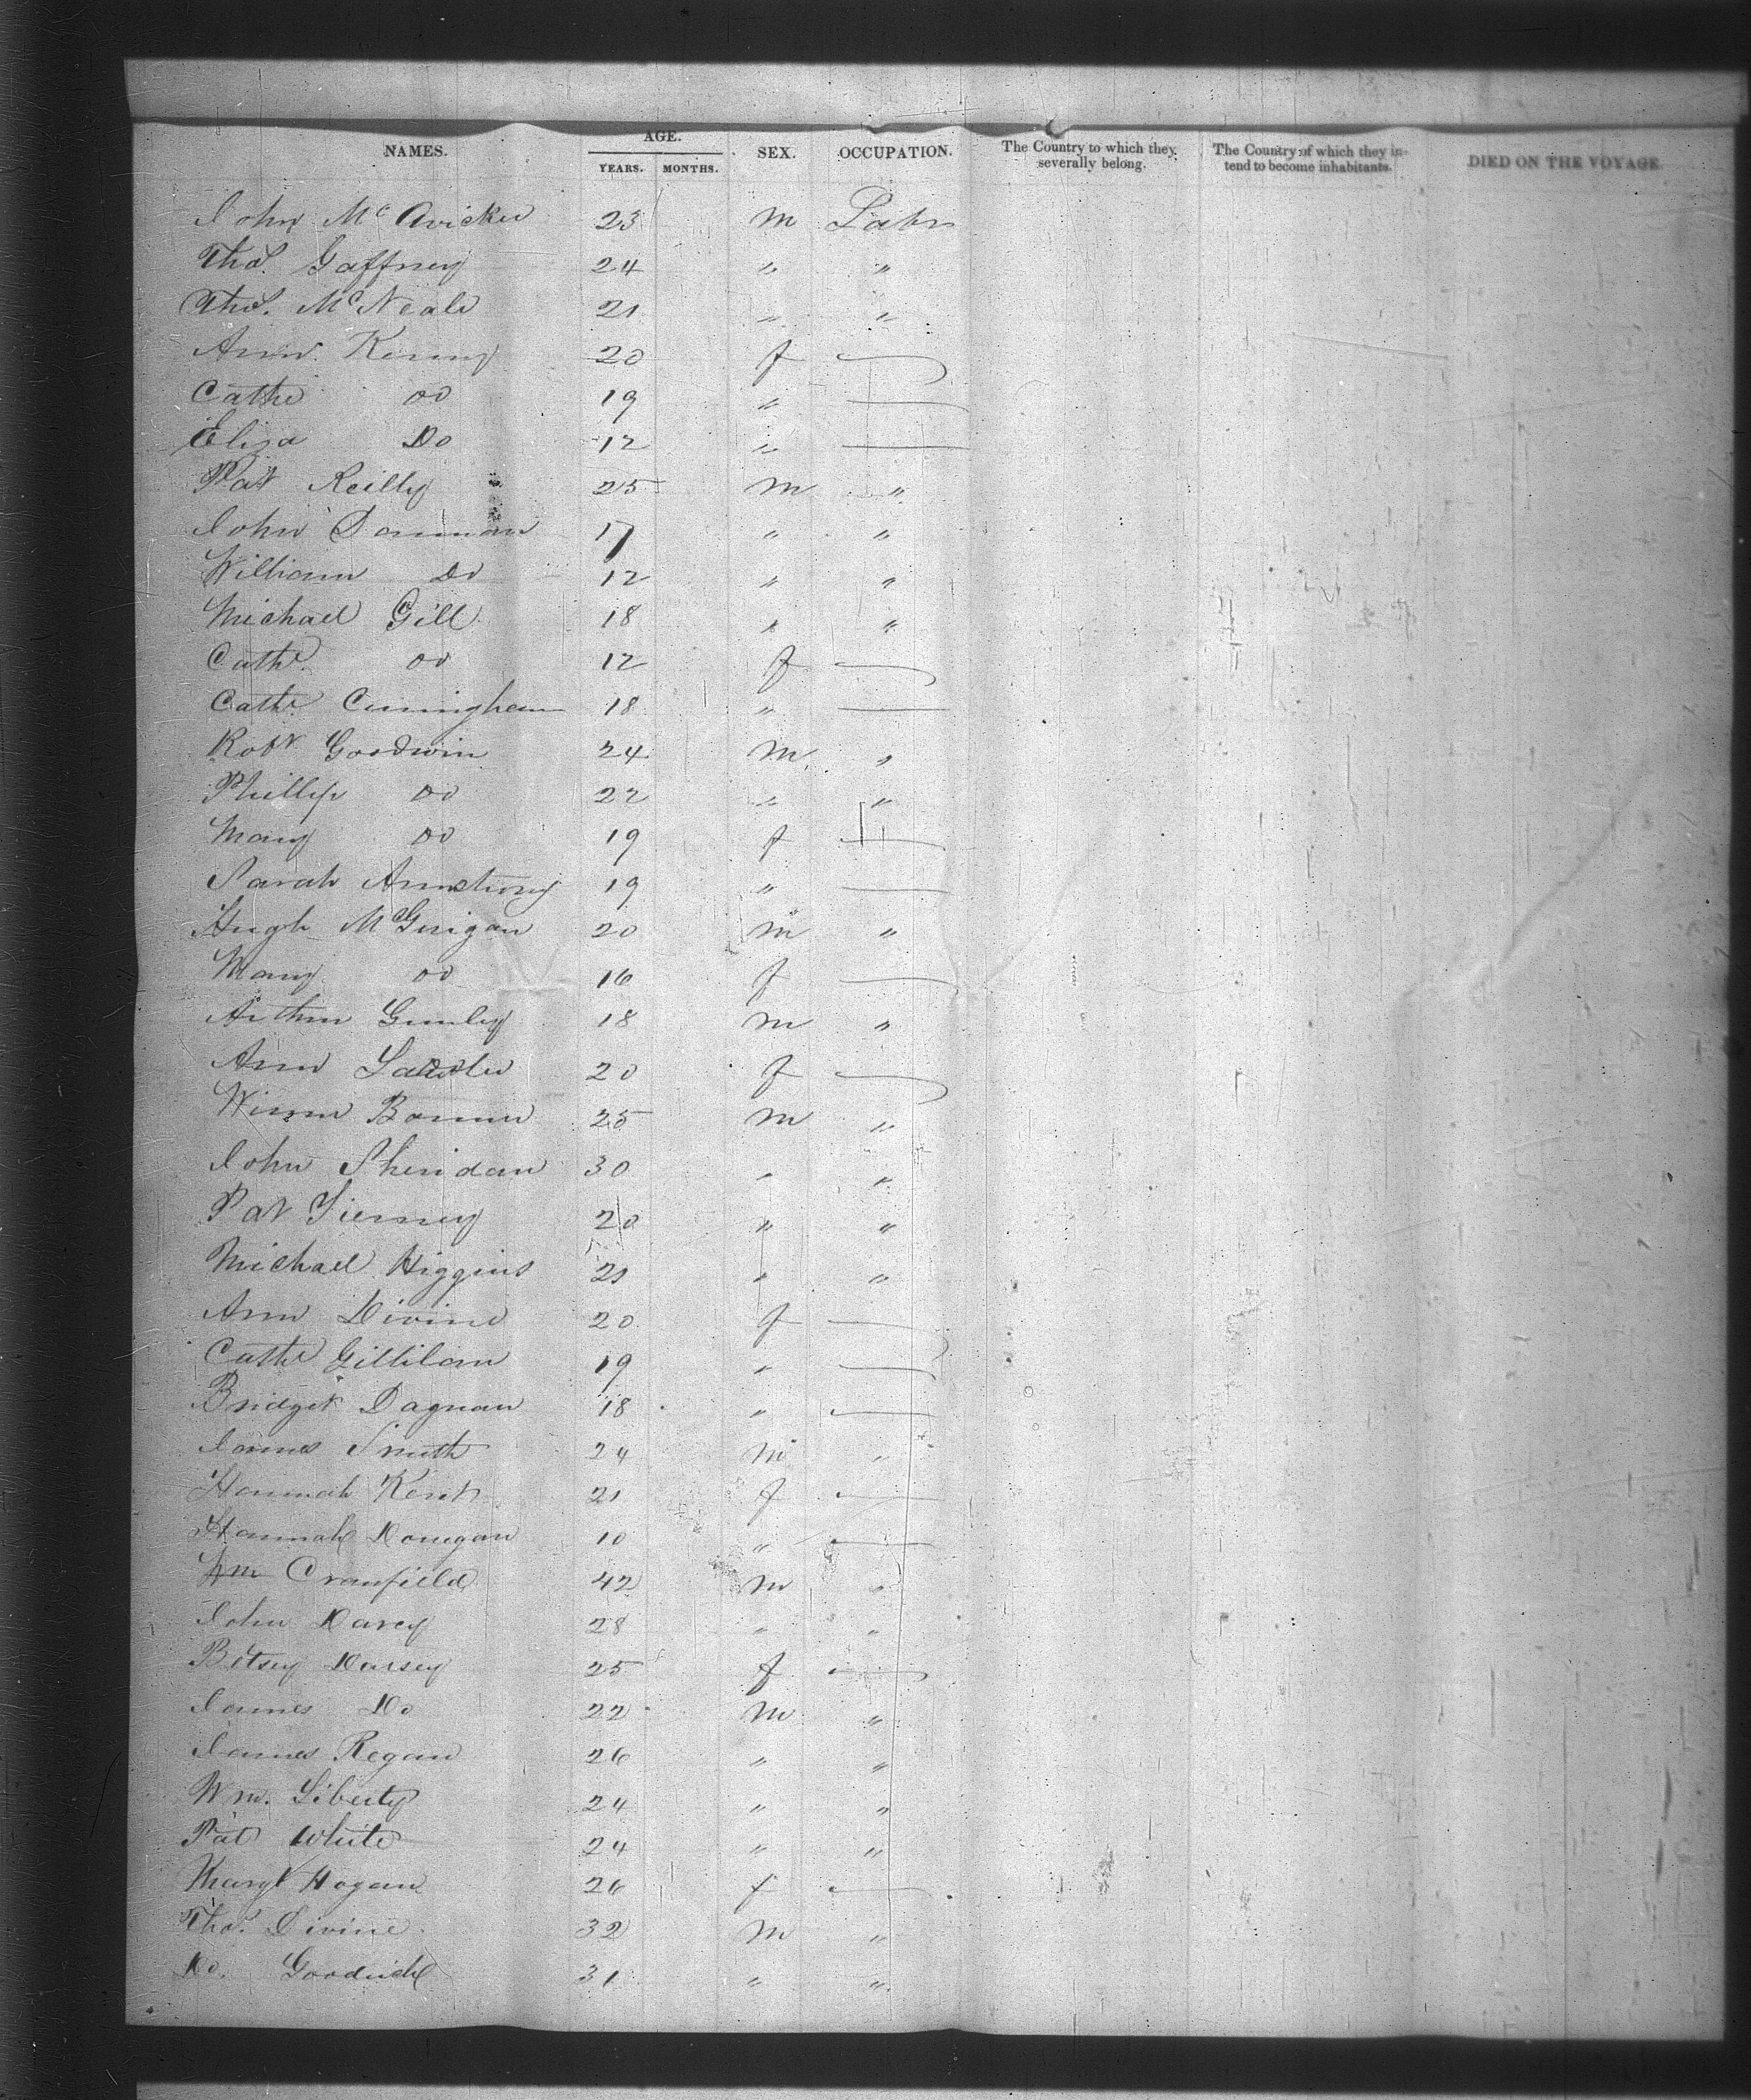 NAMES. AGE. YEARS. MONTHS. SEX. OCCUPATION. The Country to which they severally belong. The Country of which they intend to become inhabitants. DIED ON THE VOYAGE
John McAvicker 23 m Labr
Thos. Gaffney 24 " "
Thos. McNeale 21 " "
Ann Kenny 20 f
Cathe Do 19 "
Eliza Do 12 "
Pat Reilly 25 m "
John Donman 17 " "
William Do 12 " "
Michael Gill 18 " "
Cathe. Do 12 f
Cathe Cuningham 18 "
Robt Goodwin 24 m "
Phillip Do 22 " "
Mary Do 19 f
Sarah Armstrong 19 "
Hugh McGuigan 20 m "
Mary Do 16 f
Arthur Gumley 18 m "
Ann 20 f
Bonner 25 m "
John Sheridan 30 " "
Pat Tierney 20 " "
Michael Higgins 21 " "
Ann Divine 20 f
Cathe Gillilan 19 "
Bridget Dagnan 18 "
James Smith 24 m "
Hannah Kent 21 f
Hannah Donegan 10 "
Wm Cranfield 42 m "
John Darcy 28 " "
Betsey Darsey 25 f
James Do 22 m "
James Regan 26 " "
Wm. Liberty 24 " "
Pat White 24 " "
Margt Hogan 26 f
Thos. Divine 32 m "
Do. Goodrich 31 " "